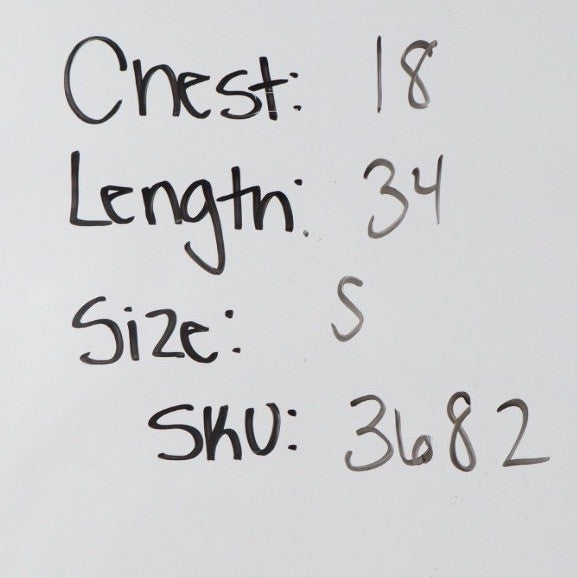 Chest: 18
Length: 34
Size: S
SKU: 3682